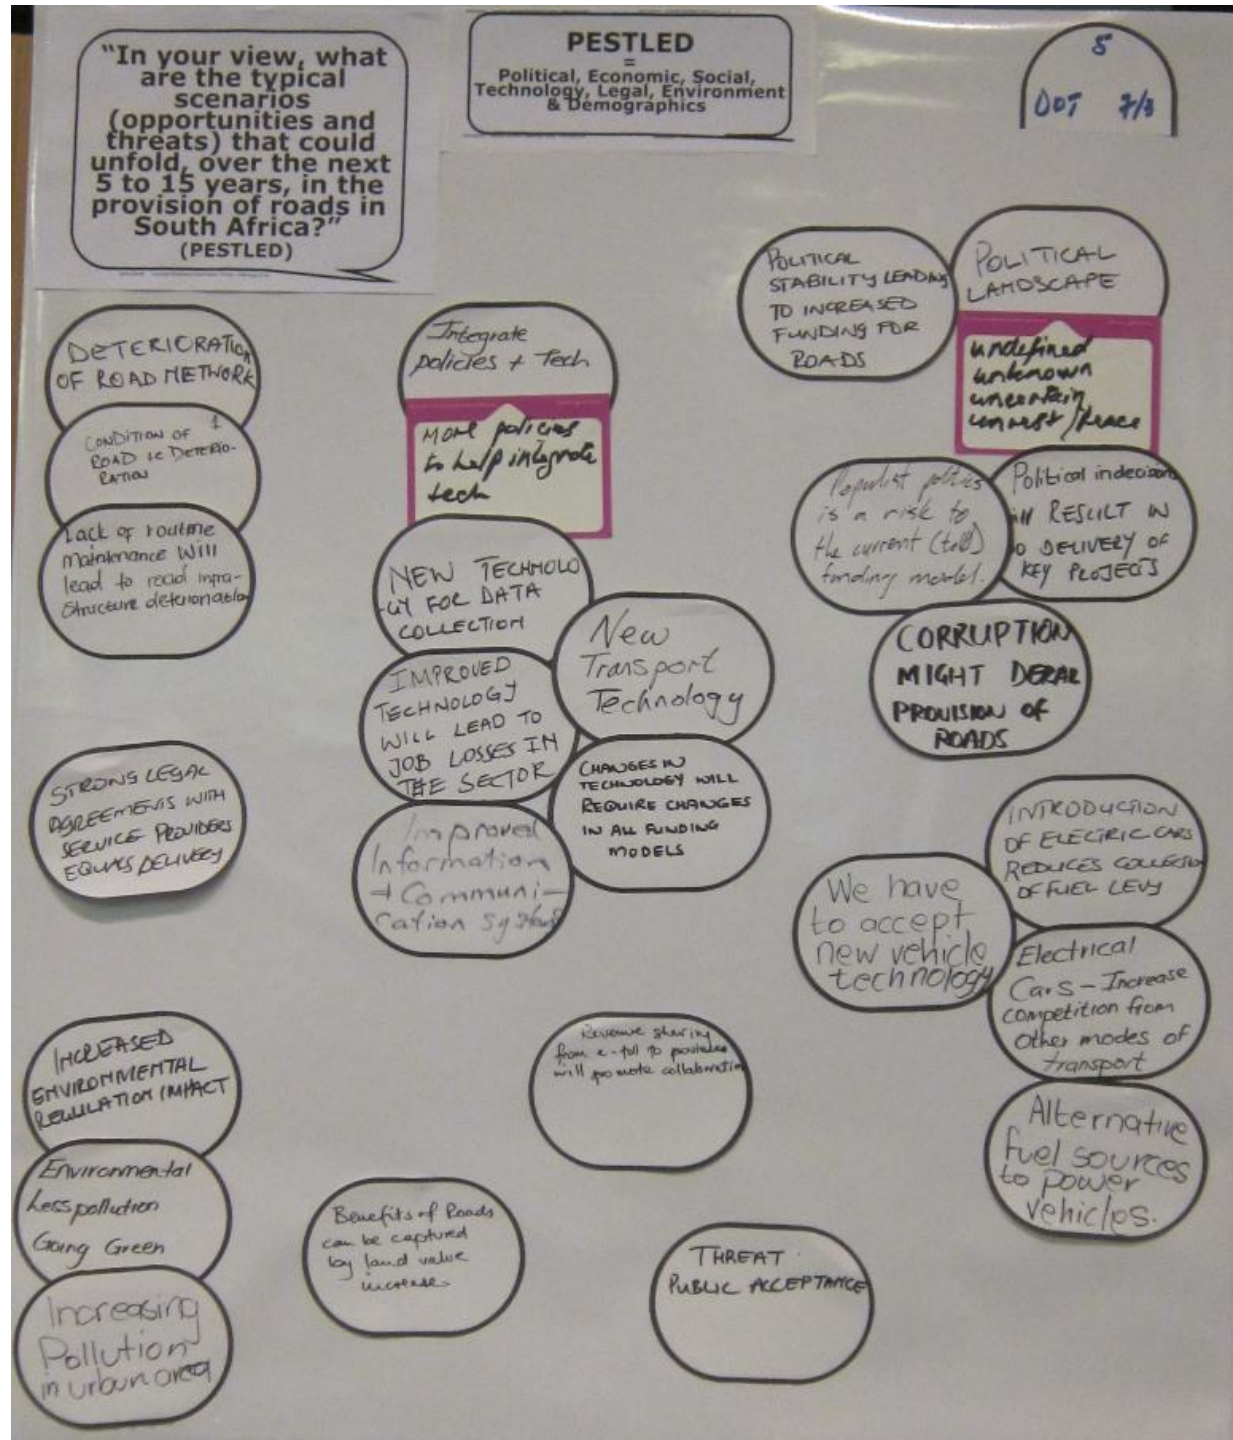 "In your view, what
are the typical
scenarios
(opportunities and
threats) that could
unfold, over the next
5 to 15 years, in the
provision of roads in
South Africa?"
(PESTLED)
PESTLED
=
Political, Economic, Social,
Technology, Legal, Environment
& Demographics
5
DOT 7/3
DETERIORATION
OF ROAD NETWORK
CONDITION OF 1
ROAD is DETERIO-
RATION
Lack of routine
maintenance will
lead to road infra-
structure deterioration
STRONG LEGAL
AGREEMENTS WITH
SERVICE PROVIDERS
EQUALS DELIVERY
INCREASED
ENVIRONMENTAL
REGULATION IMPACT
Environmental
Less pollution
Going Green
Increasing
Pollution
in urban area
Integrate
policies + Tech
More policies
to help integrate
tech
NEW TECHNOLO
-GY FOR DATA
COLLECTION
IMPROVED
TECHNOLOGY
WILL LEAD TO
JOB LOSSES IN
THE SECTOR
Improved
Information
+ Communi-
cation systems
New
Transport
Technology
CHANGES IN
TECHNOLOGY WILL
REQUIRE CHANGES
IN ALL FUNDING
MODELS
Revenue sharing
from e-toll to provinces
will promote collaboration
Benefits of Roads
can be captured
by land value
increase
THREAT
PUBLIC ACCEPTANCE
POLITICAL
STABILITY LEADING
TO INCREASED
FUNDING FOR
ROADS
POLITICAL
LANDSCAPE
undefined
unknown
uncertain
unrest/Peace
Populist politics
is a risk to
the current (toll)
funding model.
Political indecision
will RESULT IN
NO DELIVERY OF
KEY PROJECTS
CORRUPTION
MIGHT DERAIL
PROVISION OF
ROADS
INTRODUCTION
OF ELECTRIC CARS
REDUCES COLLECTION
OF FUEL LEVY
We have
to accept
new vehicle
technology
Electrical
Cars - Increase
competition from
other modes of
transport
Alternative
fuel sources
to power
vehicles.